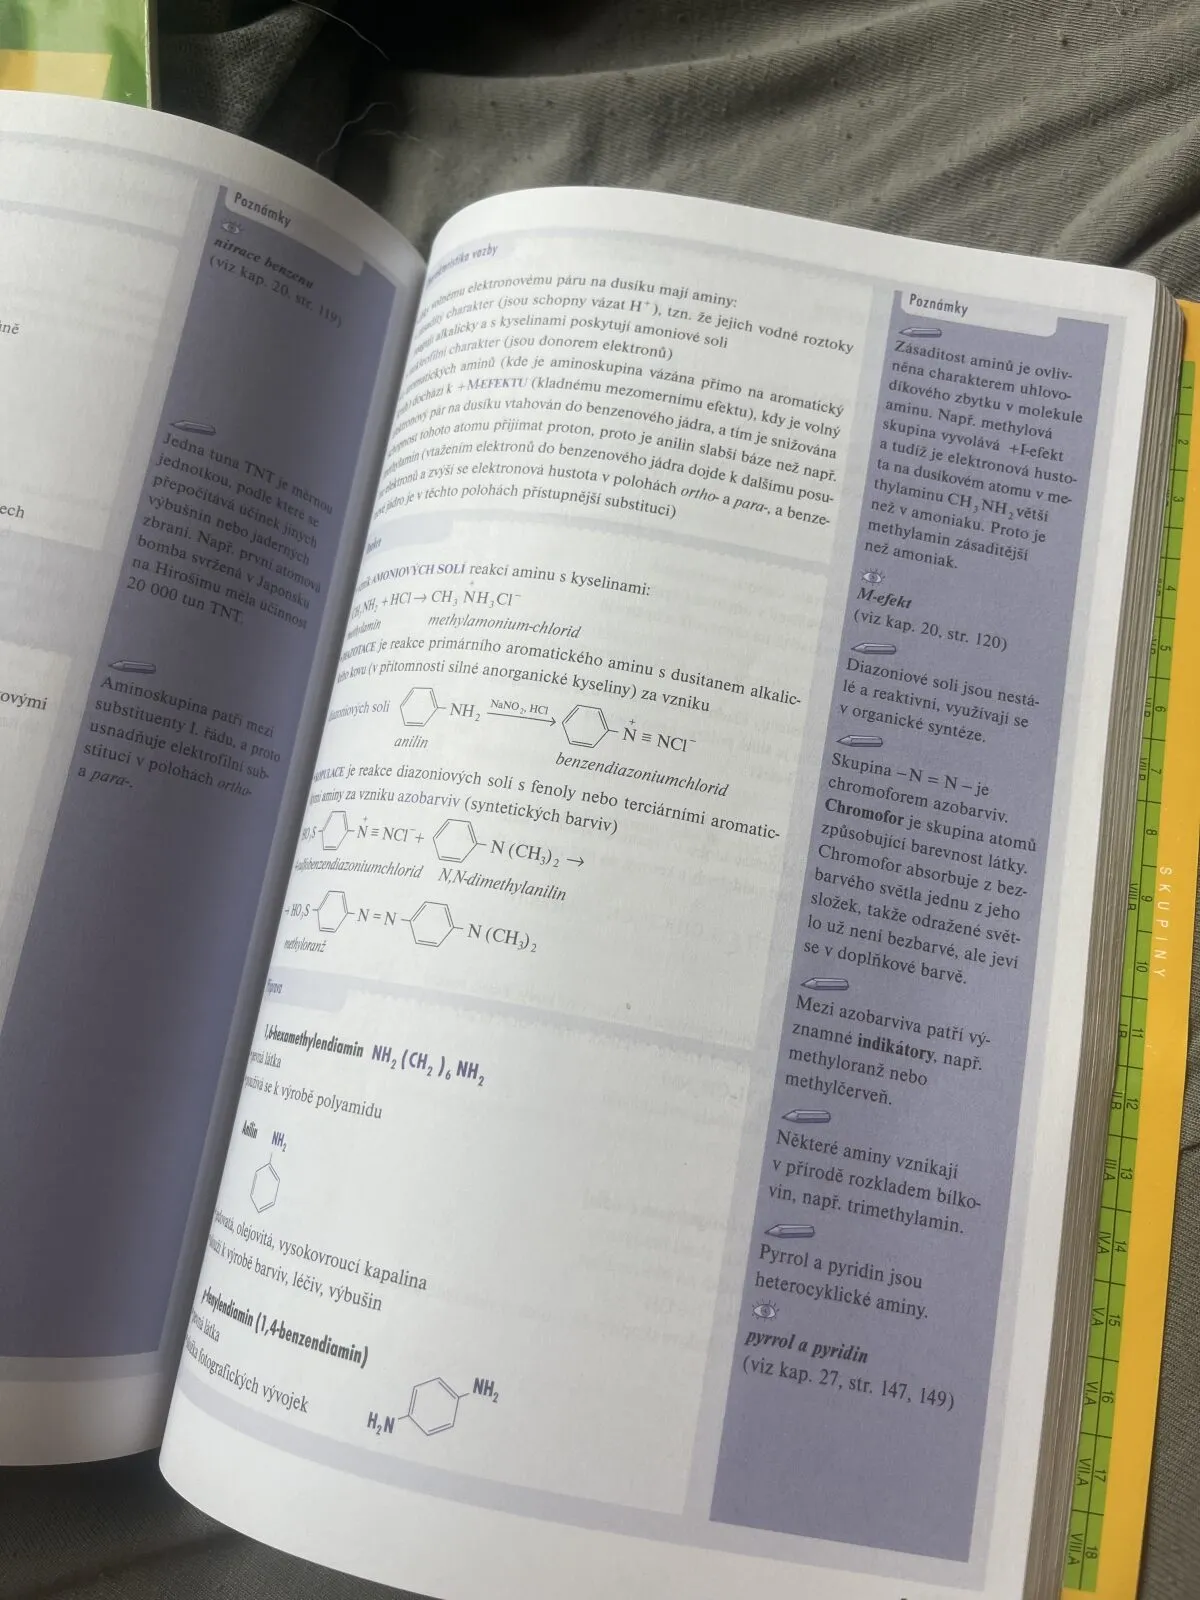 Poznámky
nitrace benzenu
(viz kap. 20, str. 119)
Jedna tuna TNT je měrnou
jednotkou, podle které se
přepočítává účinek jiných
výbušnin nebo jaderných
zbraní. Např. první atomová
bomba svržená v Japonsku
na Hirošimu měla účinnost
20 000 tun TNT.
Aminoskupina patří mezi
substituenty I. řádu, a proto
usnadňuje elektrofilní sub-
stituci v polohách ortho-
a para-.
ech
ovými
vazby
volnému elektronovému páru na dusíku mají aminy:
charakter (jsou schopny vázat H⁺), tzn. že jejich vodné roztoky
alkalicky a s kyselinami poskytují amoniové soli
charakter (jsou donorem elektronů)
aromatických aminů (kde je aminoskupina vázána přímo na aromatický
dochází k +M-EFEKTU (kladnému mezomernímu efektu), kdy je volný
pár na dusíku vtahován do benzenového jádra, a tím je snižována
tohoto atomu přijímat proton, proto je anilin slabší báze než např.
(vtažením elektronů do benzenového jádra dojde k dalšímu posu-
elektronů a zvýší se elektronová hustota v polohách ortho- a para-, a benze-
jádro je v těchto polohách přístupnější substituci)
AMONIOVÝCH SOLÍ reakcí aminu s kyselinami:
CH₃NH₂ + HCl → CH₃ N⁺H₃Cl⁻
methylamin methylamonium-chlorid
je reakce primárního aromatického aminu s dusitanem alkalic-
kovu (v přítomnosti silné anorganické kyseliny) za vzniku
diazoniových soli
NH₂ NaNO₂, HCl N⁺ ≡ NCl⁻
anilin benzendiazoniumchlorid
je reakce diazoniových solí s fenoly nebo terciárními aromatic-
aminy za vzniku azobarviv (syntetických barviv)
HO₃S N⁺ ≡ NCl⁻ + N (CH₃)₂ →
N,N-dimethylanilin
→ HO₃S N = N N (CH₃)₂
methyloranž
1,6-hexamethylendiamin NH₂ (CH₂)₆ NH₂
látka
se k výrobě polyamidu
Anilin NH₂
olejovitá, vysokovroucí kapalina
k výrobě barviv, léčiv, výbušin
p-fenylendiamin (1,4-benzendiamin)
látka
fotografických vývojek
H₂N NH₂
Poznámky
Zásaditost aminů je ovliv-
něna charakterem uhlovo-
díkového zbytku v molekule
aminu. Např. methylová
skupina vyvolává +I-efekt
a tudíž je elektronová husto-
ta na dusíkovém atomu v me-
thylaminu CH₃NH₂ větší
než v amoniaku. Proto je
methylamin zásaditější
než amoniak.
M-efekt
(viz kap. 20, str. 120)
Diazoniové soli jsou nestá-
lé a reaktivní, využívají se
v organické syntéze.
Skupina –N = N– je
chromoforem azobarviv.
Chromofor je skupina atomů
způsobující barevnost látky.
Chromofor absorbuje z bez-
barvého světla jednu z jeho
složek, takže odražené svět-
lo už není bezbarvé, ale jeví
se v doplňkové barvě.
Mezi azobarviva patří vý-
znamné indikátory, např.
methyloranž nebo
methylčerveň.
Některé aminy vznikají
v přírodě rozkladem bílko-
vin, např. trimethylamin.
Pyrrol a pyridin jsou
heterocyklické aminy.
pyrrol a pyridin
(viz kap. 27, str. 147, 149)
SKUPINY
1
2
3
4
5
6
7
8
9
10
11
12
13
14
15
16
17
18
VIII.B
I.B
II.B
III.A
IV.A
V.A
VI.A
VII.A
VIII.A